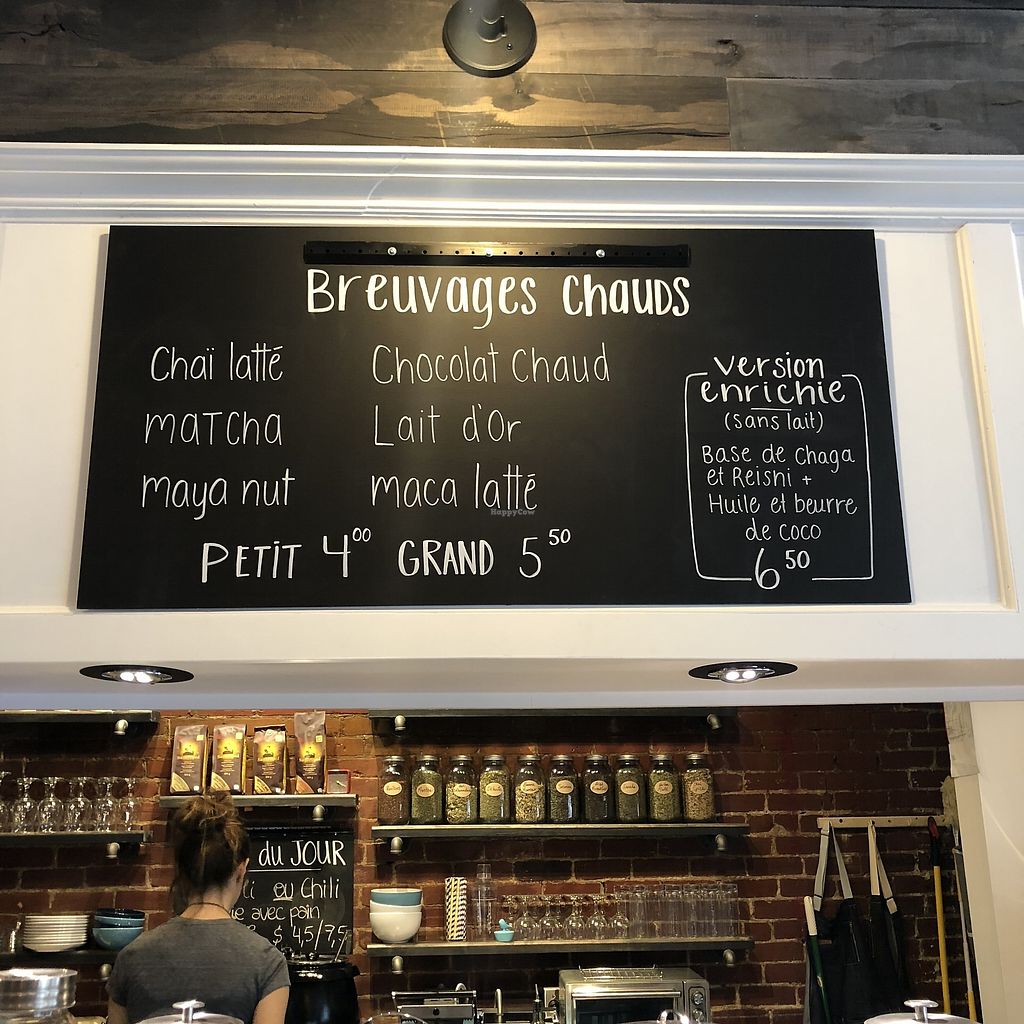 Breuvages Chauds
Chaï latté
matcha
maya nut
Chocolat Chaud
Lait d'Or
maca latté
PETIT 4⁰⁰ GRAND 5⁵⁰
version
enrichie
(sans lait)
Base de chaga
et Reishi +
Huile et beurre
de coco
6⁵⁰
HappyCow
du JOUR
ou Chili
avec pain
$ 4,5/7,5